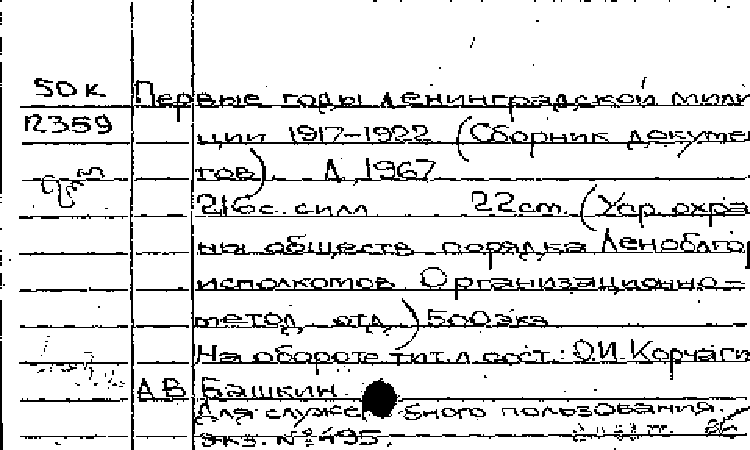 50к Первые годы Ленинградской мили
12359 ции 1917-1922 (Сборник документ
тов). Л, 1967
216с. силл 22cm. (Упр. охра
ны обществ порядка Леноблгор
исполкомов Организационно=
метод, отд) 500экз
На обороте тит.л сост.: О.И. Корчаги
А В Башкин
Для служебного пользования.
экз. №495.